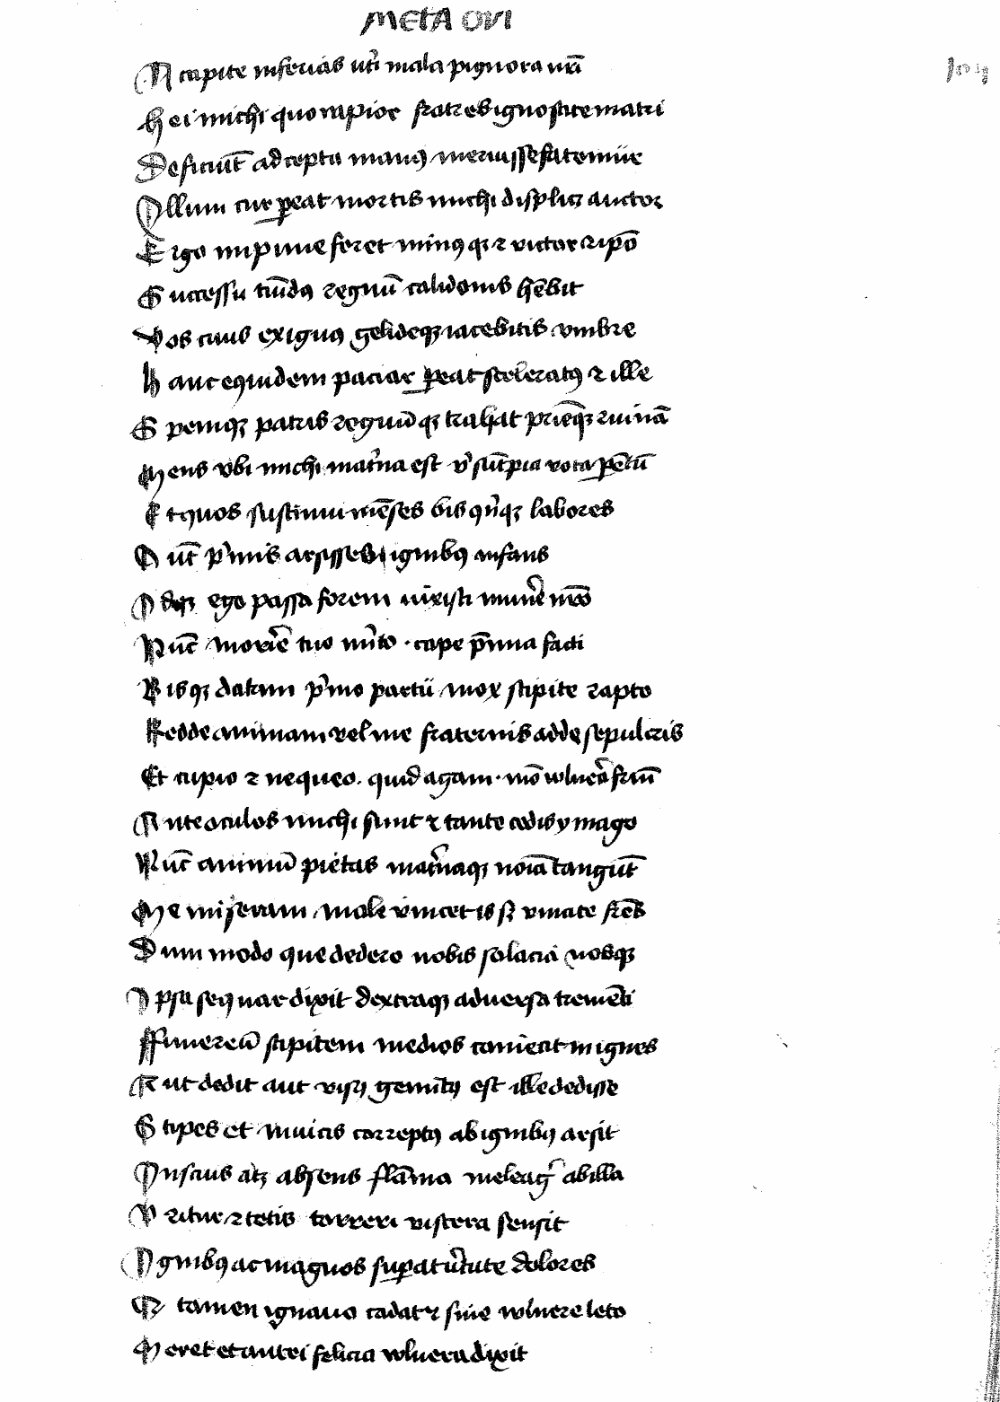 META OVI
Accipite inferias uťi mala pignora nřı̄
Hei michi quo rapior fratres ignoscite matri
Deficiūt ad cepta manꝰ meruisse fatemur
Illum cur ꝑeat mortis michi displicꝫ auctor
Ergo impune feret uiuꝰqꝫ ⁊ uictor ⁊ ipō
Successu tumidꝰ regnū calidonis h̄ebit
Vos cinis exiguꝰ gelideqꝫ iacebitis vmbre
Haut equidem paciar ꝑeat sceleratꝰ ⁊ ille
Spemqꝫ patris regnūqꝫ trahat pr̄ieqꝫ ruinā
Mens vbi michi mat̾na est vͥ sūt pia vota ꝑētū
Et quos sustinui mēses bis qͥnqꝫ labores
O utī pͥmis arsisses ignibꝰ infans
Idqꝫ ego passa forem uixisti mun̾e nr̄o
Nūc morie͂ tuo m̾ito . cape p̄mia facti
Bisqꝫ datam pͥmo partū mox stipite rapto
Redde animam vel me fraternis adde sepulcris
Et cupio ⁊ nequeo . quid agam . mō vlnera fr̄m
Ante oculos michi sunt ⁊ tante cedis ymago
Nūc animū pietas mat̾naqꝫ noīa tangūt
Me miseram male vincetis sꝫ vincite fr̄es
Dum modo que dedero nobis solacia uosqꝫ
Ipsa sequar dixit dextraqꝫ aduersa trementi
Ffunereū stipitem medios coniecit in ignes
Aut dedit aut visꝰ gemitꝰ est ille dedisse
Stipes et inuitis correptꝰ ab ignibꝰ arsit
Inscius atqꝫ absens flāma meleagͥ ab illa
Vritur ⁊ cecis torreri viscera sensit
Ignibꝰ ac magnos suꝑat uͥtute dolores
Q tamen ignauo cadat ⁊ sine vlnere leto
Meret et ancei felicia vlnera dixit